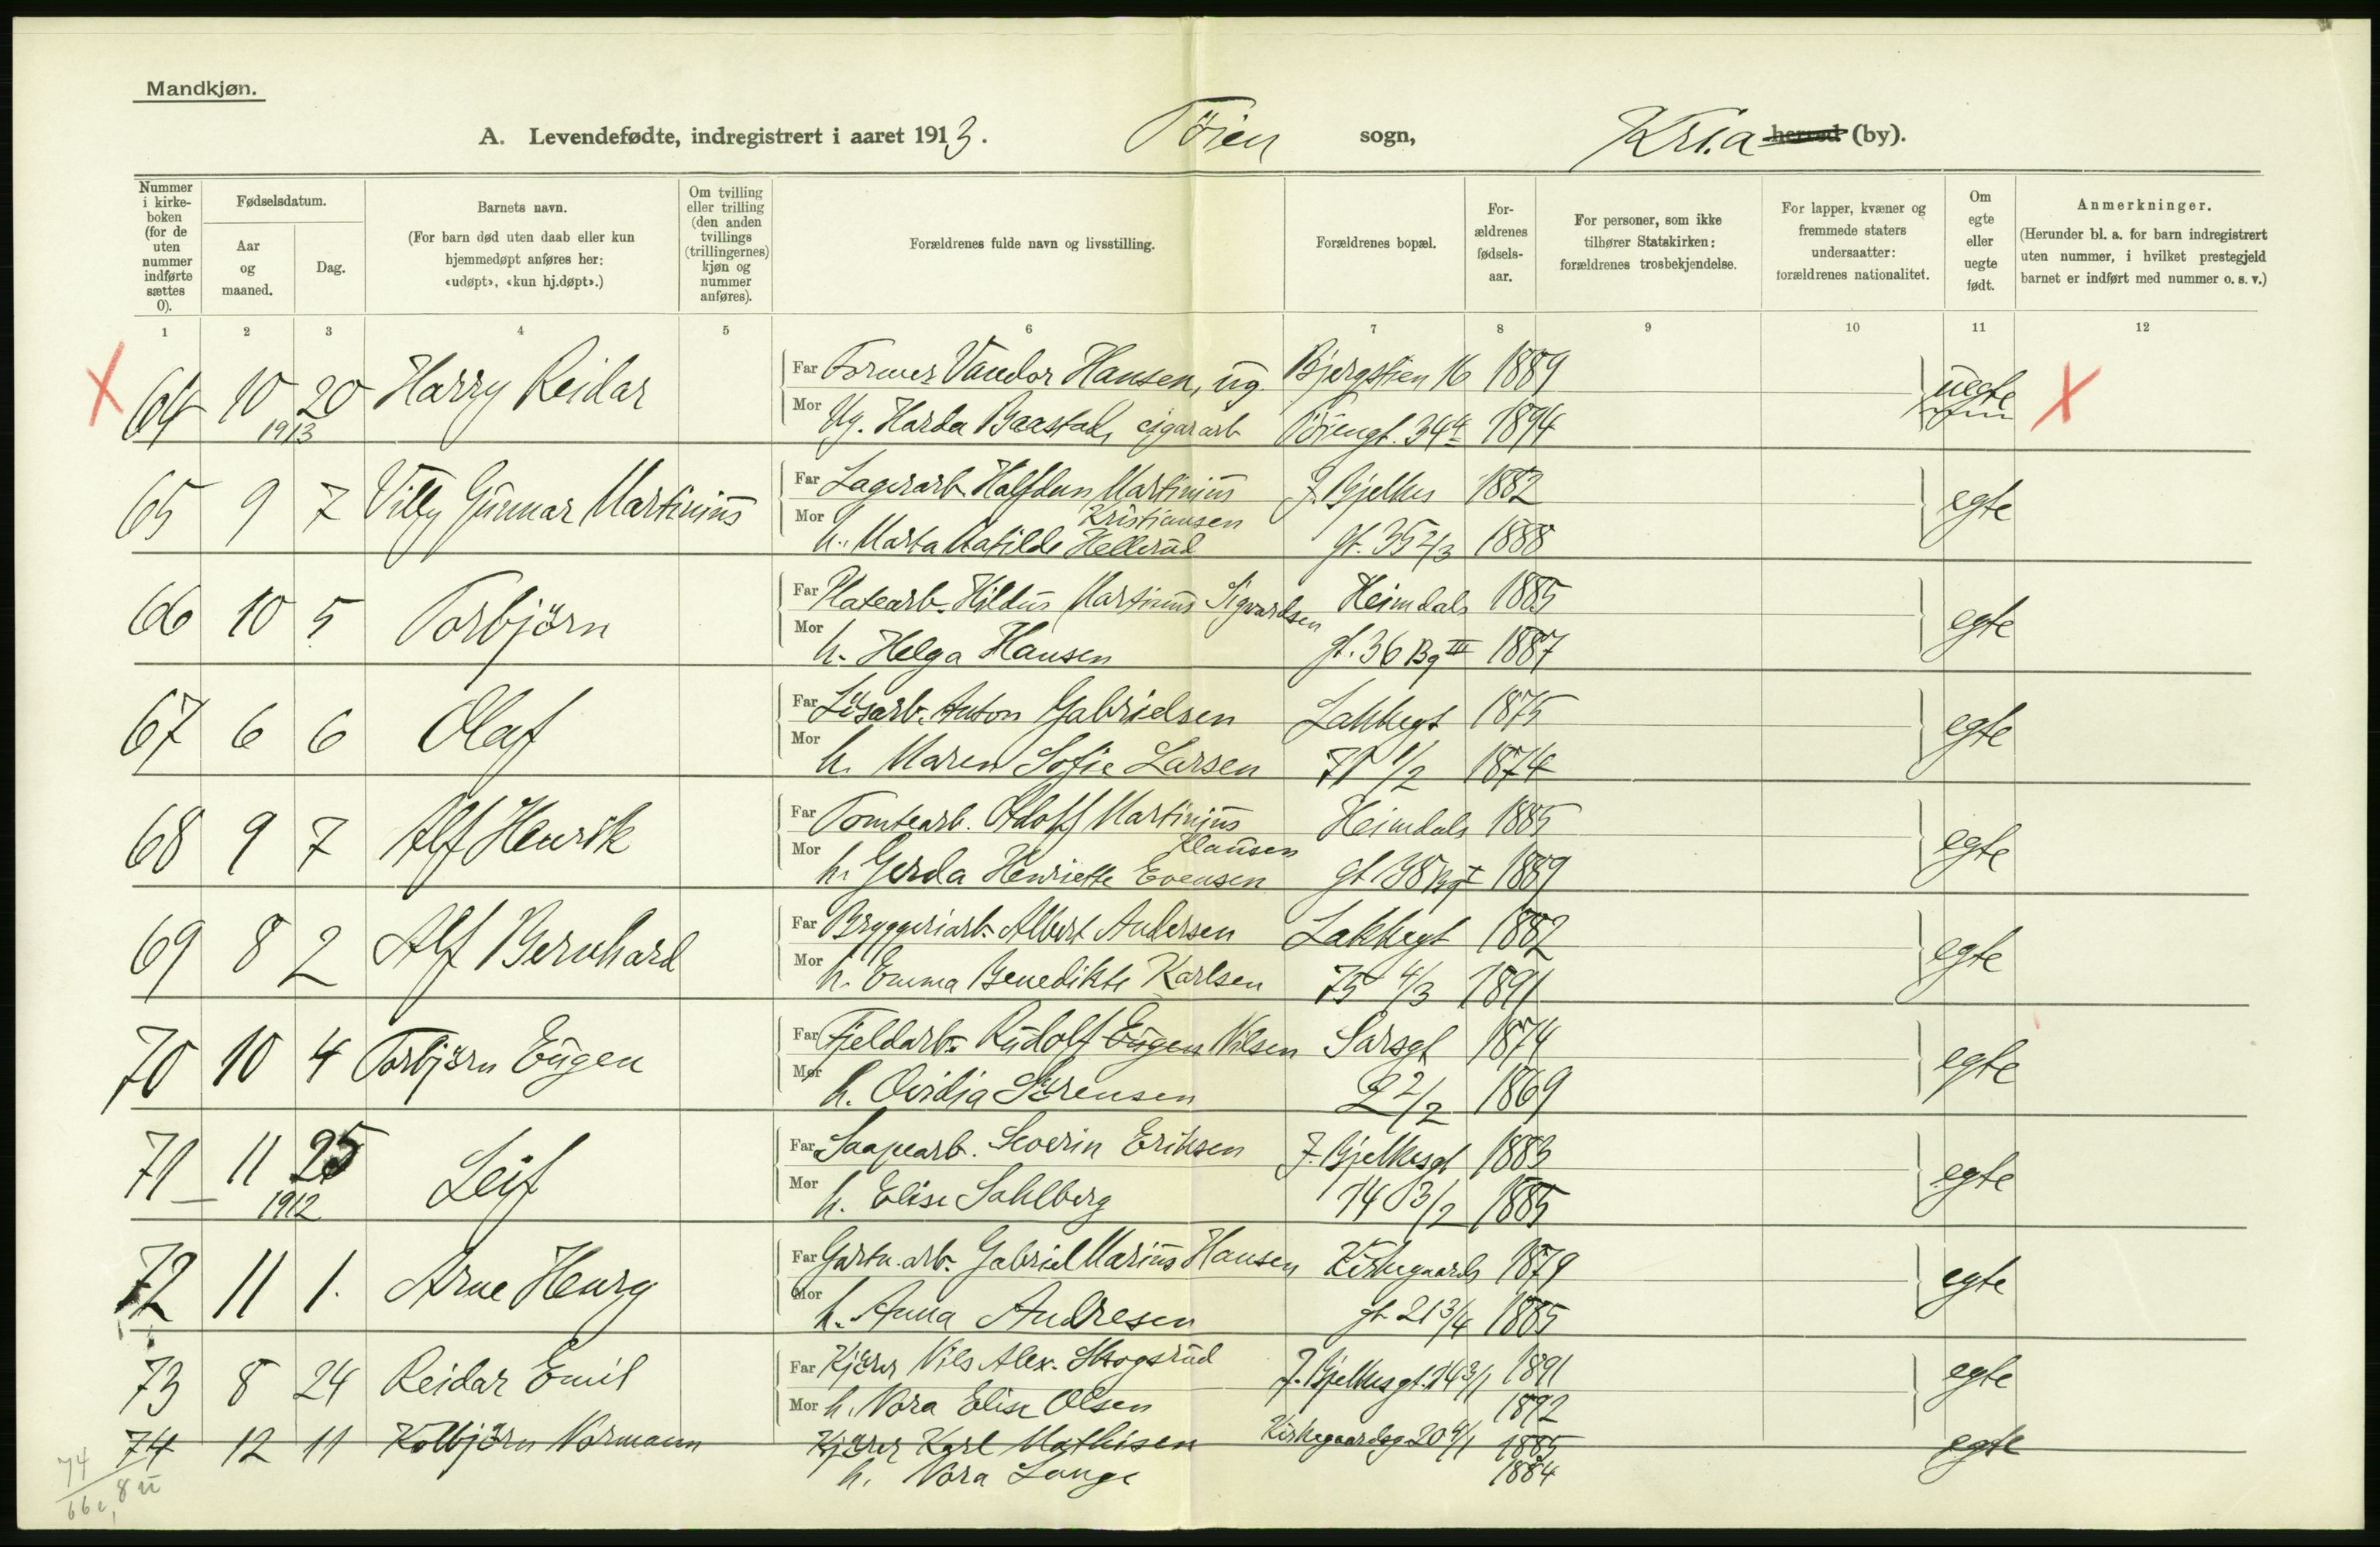 Mandkjøn.
A. Levendefødte, indregistrert i aaret 1913. Töien sogn, Kria herred (by).
Nummer i kirke-boken (for de uten nummer indførte sættes 0).
Fødselsdatum.
Aar og maaned.
Dag.
Barnets navn.
(For barn død uten daab eller kun hjemmedøpt anføres her: «udøpt», «kun hj.døpt».)
Om tvilling eller trilling (den anden tvillings (trillingernes) kjøn og nummer anføres).
Forældrenes fulde navn og livsstilling.
Forældrenes bopæl.
For-ældrenes fødsels-aar.
For personer, som ikke tilhører Statskirken: forældrenes trosbekjendelse.
For lapper, kvæner og fremmede staters undersaatter: forældrenes nationalitet.
Om egte eller uegte født.
Anmerkninger.
(Herunder bl. a. for barn indregistrert uten nummer, i hvilket prestegjeld barnet er indført med nummer o. s. v.)
1 2 3 4 5 6 7 8 9 10 11 12
X 64 10 20 Harry Reidar Far Former Vandor Hansen, ug. Bjergstien 16 1889 uegte X
1913 Mor Ug. Harda Baastad, cigararb Töiengt. 34 1894
65 9 7 Villy Gunnar Martinius Far Lagerarb. Halfdan Martinius J. Bjelkes 1882 egte
Kristiansen
Mor h. Marta Matilde Hellerud gt. 35 2/3 1888
66 10 5 Torbjörn Far Platearb. Hildus Martinus Sigvardsen Heimdals 1885 egte
Mor h. Helga Hansen gt. 36 Bg III 1887
67 6 6 Olaf Far Lösarb. Anton Gabrielsen Lakkegt 1875 egte
Mor h. Maren Sofie Larsen 71 1/2 1874
68 9 7 Alf Henrik Far Tomtearb. Adolf Martinius Heimdals 1885 egte
Klausen
Mor h. Gerda Henriette Evensen gt 1889
69 8 2 Alf Bernhard Far Bryggeriarb. Albert Andersen Lakkegt 1882 egte
Mor h. Emma Benedikte Karlsen 75 4/3 1891
70 10 4 Torbjörn Eugen Far Fjeldarb. Rudolf Eugen Nilsen Sarsgt 1874 egte
Mor h. Ovidia Sörensen 2 2/2 1869
71 11 25 Leif Far Saapearb. Severin Eriksen J. Bjelkesgt 1883 egte
1912 Mor h. Elise Sahlberg 14 3/2 1885
72 11 1. Arne Henry Far Gartn. arb. Gabriel Marius Hansen Kirkegaards 1879 egte
Mor h. Anna Andresen gt. 21 3/4 1885
73 8 24 Reidar Emil Far Kjörer Nils Alex. Skogsrud J. Bjelkesgt. 14 3/1 1891 egte
Mor h. Nora Elise Olsen 1892
74 12 11 Kolbjörn Normann Kjörer Karl Mathisen Kirkegaardsg. 20 4/1 1885 egte
h. Nora Lange 1884
74
66 e, 8 u